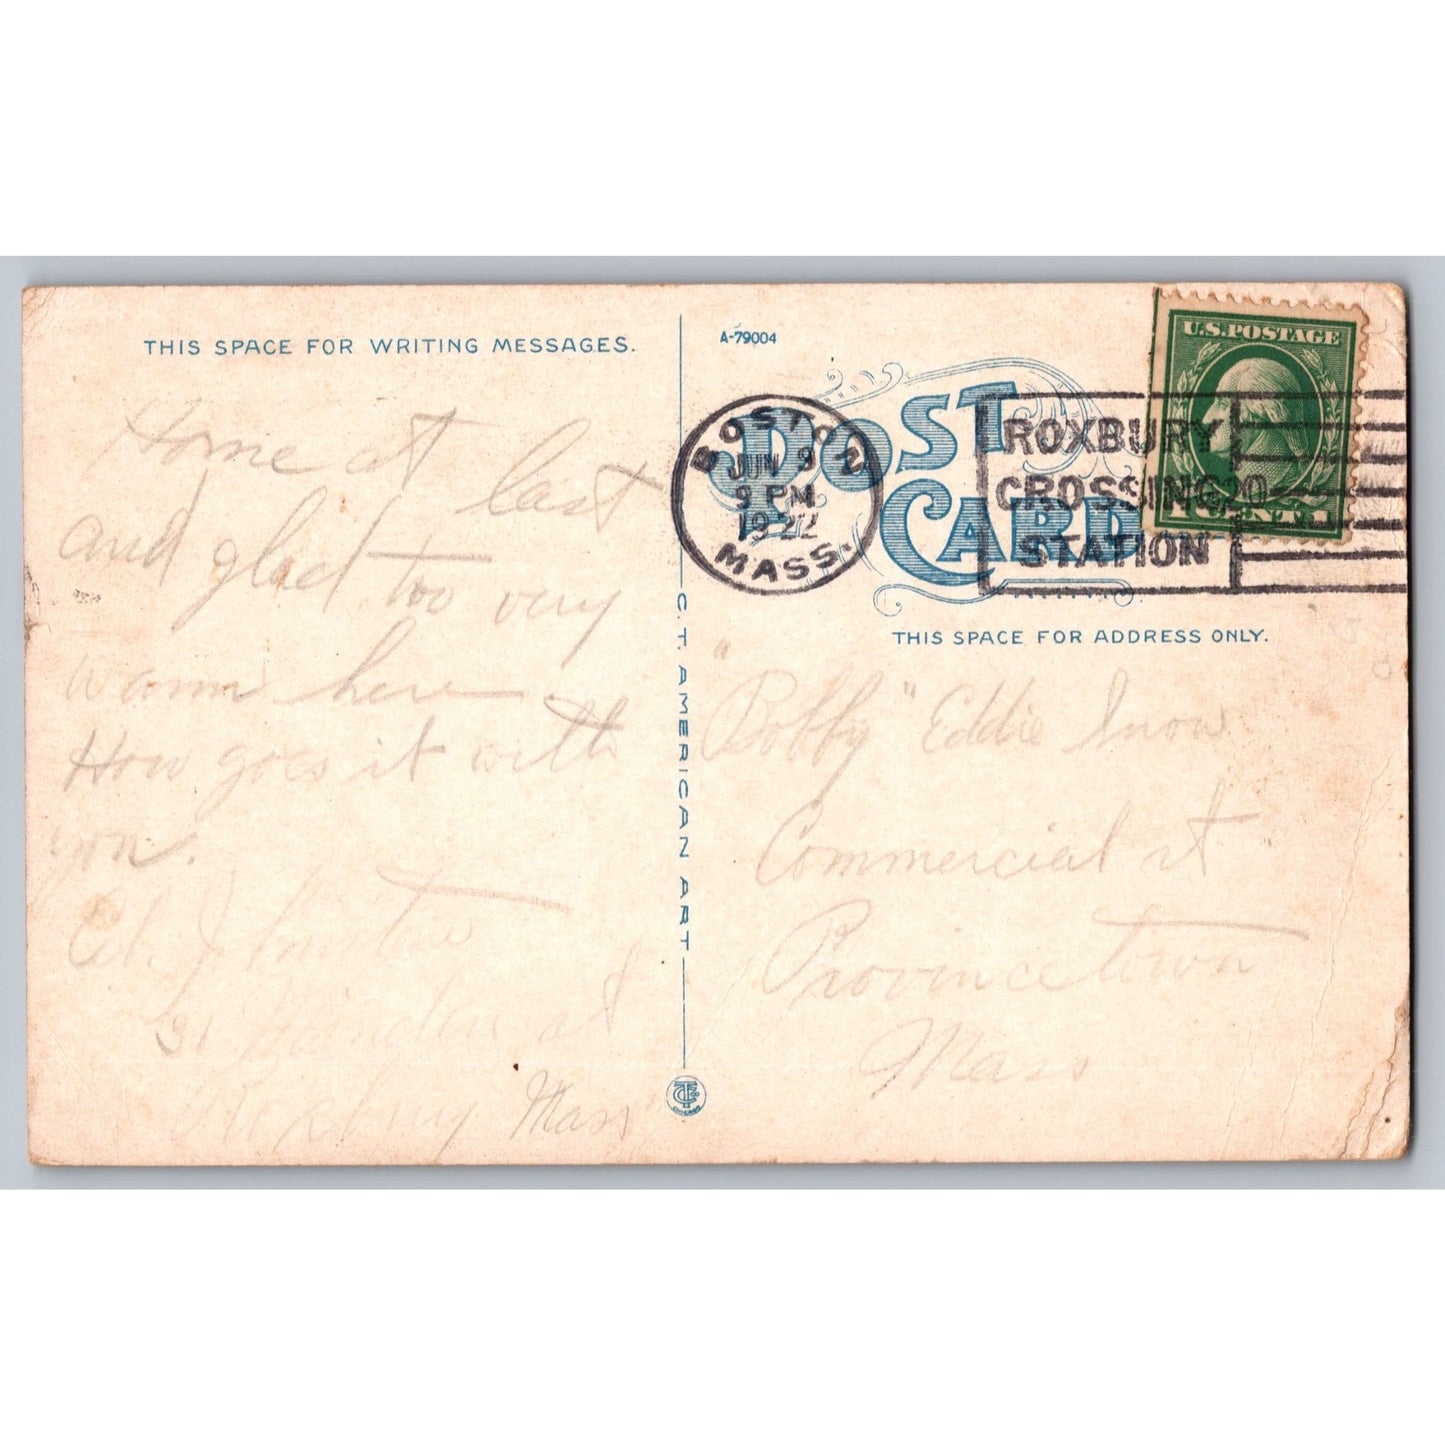 THIS SPACE FOR WRITING MESSAGES.
Home at last
and glad too very
warm here
How goes it with
you.
31 st
Roxbury Mass
C.T. AMERICAN ART
CHICAGO
A-79004
POST
CARD
BOSTON
JUN 9
9 PM
1922
MASS.
ROXBURY
CROSSING 20
STATION
U.S. POSTAGE
CENT 1
THIS SPACE FOR ADDRESS ONLY.
"Bobby" Eddie Snow
Commercial st
Provincetown
Mass